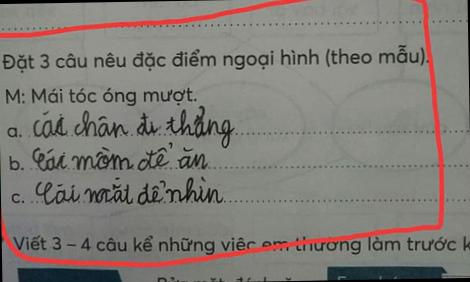 Đặt 3 câu nêu đặc điểm ngoại hình (theo mẫu).
M: Mái tóc óng mượt.
a. Cái chân đi thẳng
b. Cái mồm để ăn
c. Cái mắt để nhìn
Viết 3 – 4 câu kể những việc em thường làm trước k